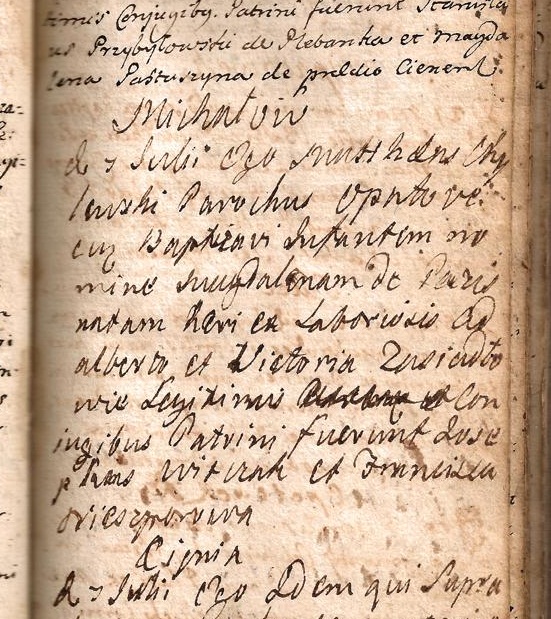 timis Conjugiby. Patrini fuerunt Stanisla
us Przybyłowski de Plebanka et Magda
lena Pastuszyna de prædio Cienenl:
Michałow
d 7 Julii Ego Matthæus Chy
lewski Parochus Opatove
Baptizavi Infantem no
mine Magdalenam de Paris
natam heri ex Laboriosis Ad
alberto et Victoria
Legitimis Con
iugibus Patrini fuerunt Jose
phus et Francisca

Cignia
d 7 Julii Ego Idem qui Supra